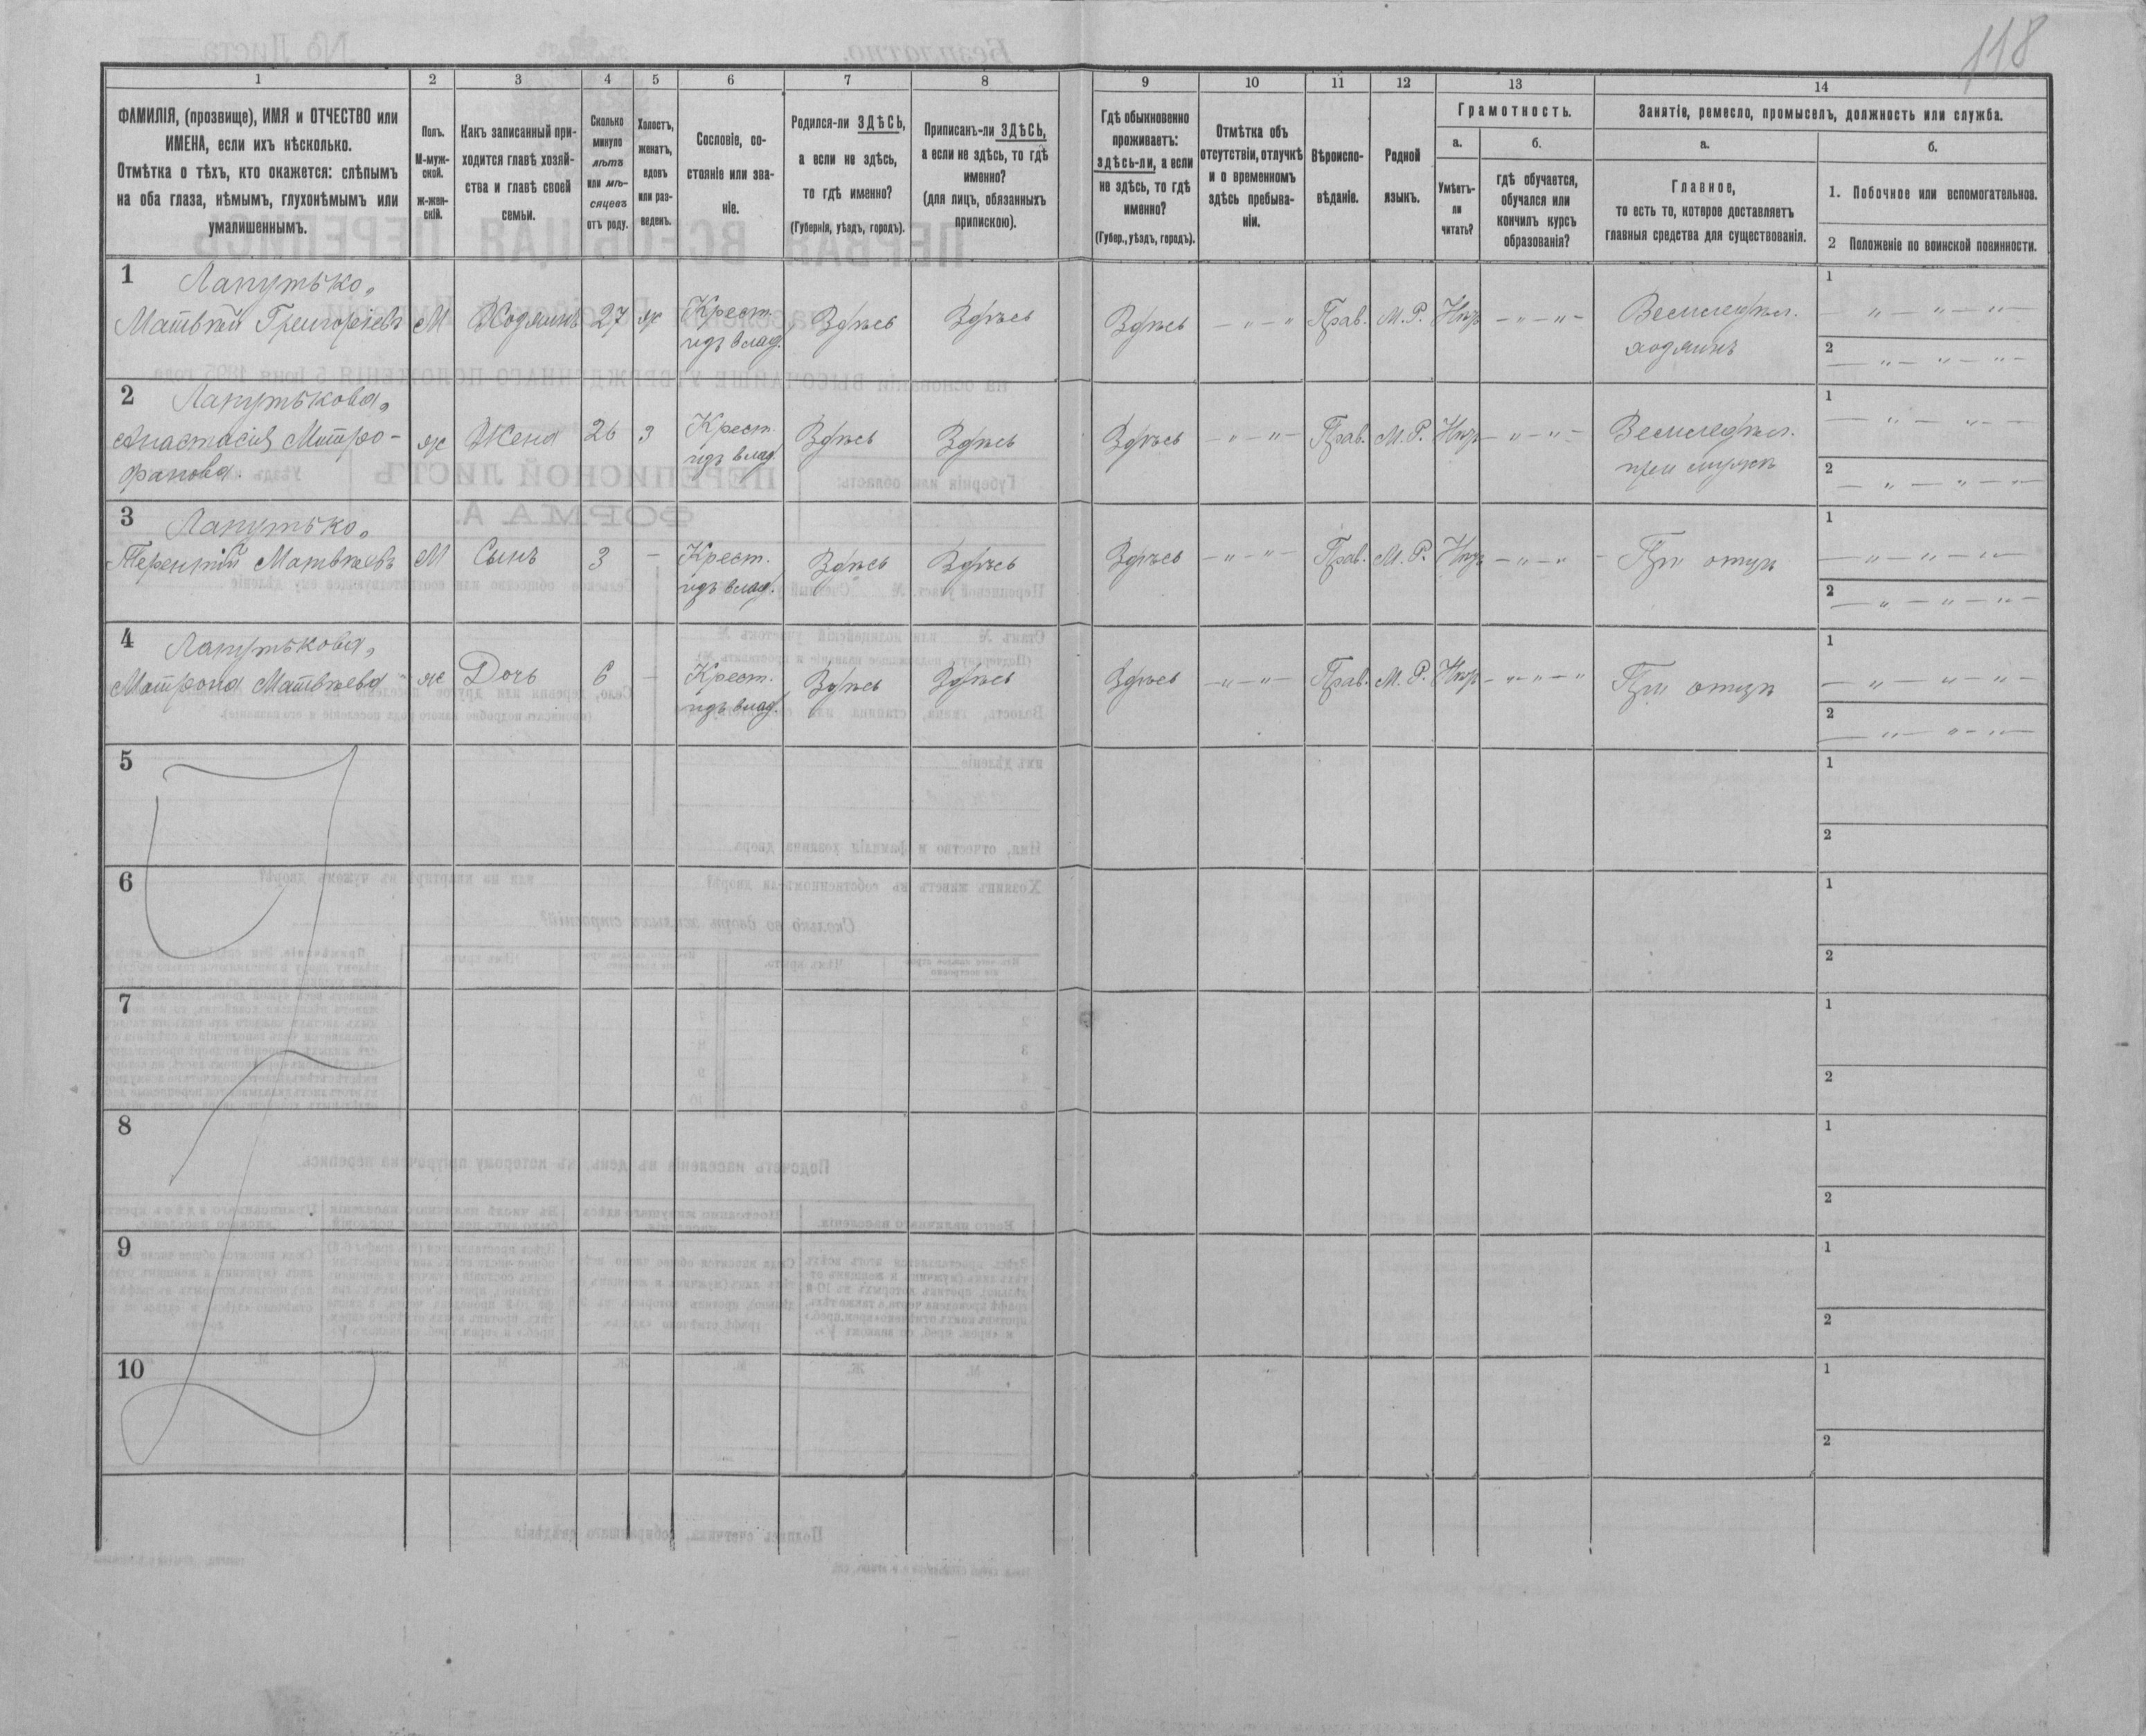 118
1
2
3
4
5
6
7
8
9
10
11
12
13
14
ФАМИЛІЯ, (прозвище), ИМЯ и ОТЧЕСТВО или
ИМЕНА, если ихъ нѣсколько.
Отмѣтка о тѣхъ, кто окажется: слѣпымъ
на оба глаза, нѣмымъ, глухонѣмымъ или
умалишеннымъ.
Полъ.
М-муж-
ской.
ж-жен-
скій.
Какъ записанный при-
ходится главѣ хозяй-
ства и главѣ своей
семьи.
Сколько
минуло
лѣтъ
или мѣ-
сяцевъ
отъ роду.
Холостъ,
женатъ,
вдовъ
или раз-
веденъ.
Сословіе, со-
стояніе или зва-
ніе.
Родился-ли ЗДѢСЬ,
а если не здѣсь,
то гдѣ именно?
(Губернія, уѣздъ, городъ).
Приписанъ-ли ЗДѢСЬ,
а если не здѣсь, то гдѣ
именно?
(для лицъ, обязанныхъ
припискою).
Гдѣ обыкновенно
проживаетъ:
здѣсь-ли, а если
не здѣсь, то гдѣ
именно?
(Губер., уѣздъ, городъ).
Отмѣтка объ
отсутствіи, отлучкѣ
и о временномъ
здѣсь пребыва-
ніи.
Вѣроиспо-
вѣданіе.
Родной
языкъ.
Грамотность.
а.
Умѣетъ-
ли
читать?
б.
гдѣ обучается,
обучался или
кончилъ курсъ
образованія?
Занятіе, ремесло, промыселъ, должность или служба.
а.
Главное,
то есть то, которое доставляетъ
главныя средства для существованія.
б.
1. Побочное или вспомогательное.
2 Положеніе по воинской повинности.
1 Лапутько,
Матвѣй Григоріевъ М Хозяинъ 27 ж Крест. Здѣсь Здѣсь Здѣсь — „ — „ Прав. М. Р. Нѣтъ — „ — „ — Земледѣл.
изъ влад. хозяинъ
1 — „ — „ — „ —
2 — „ — „ — „ —
2 Лапутькова,
Анастасія Митро- ж Жена 26 з Крест. Здѣсь Здѣсь Здѣсь — „ — „ — Прав. М. Р. Нѣтъ — „ — „ — Земледѣл.
фанова. изъ влад. при мужѣ
1 — „ — „ — „ —
2 — „ — „ — „ —
3 Лапутько,
Терентій Матвѣевъ М Сынъ 3 — Крест. Здѣсь Здѣсь Здѣсь — „ — „ — Прав. М. Р. Нѣтъ — „ — „ — При отцѣ
изъ влад.
1 — „ — „ — „
2 — „ — „ — „ —
4 Лапутькова,
Матрона Матвѣева ж Дочь 6 — Крест. Здѣсь Здѣсь Здѣсь — „ — „ — Прав. М. Р. Нѣтъ — „ — „ — „ При отцѣ
изъ влад.
1 — „ — „ — „ —
2 — „ — „ — „ —
5
1
2
6
1
2
7
1
2
8
1
2
9
1
2
10
1
2